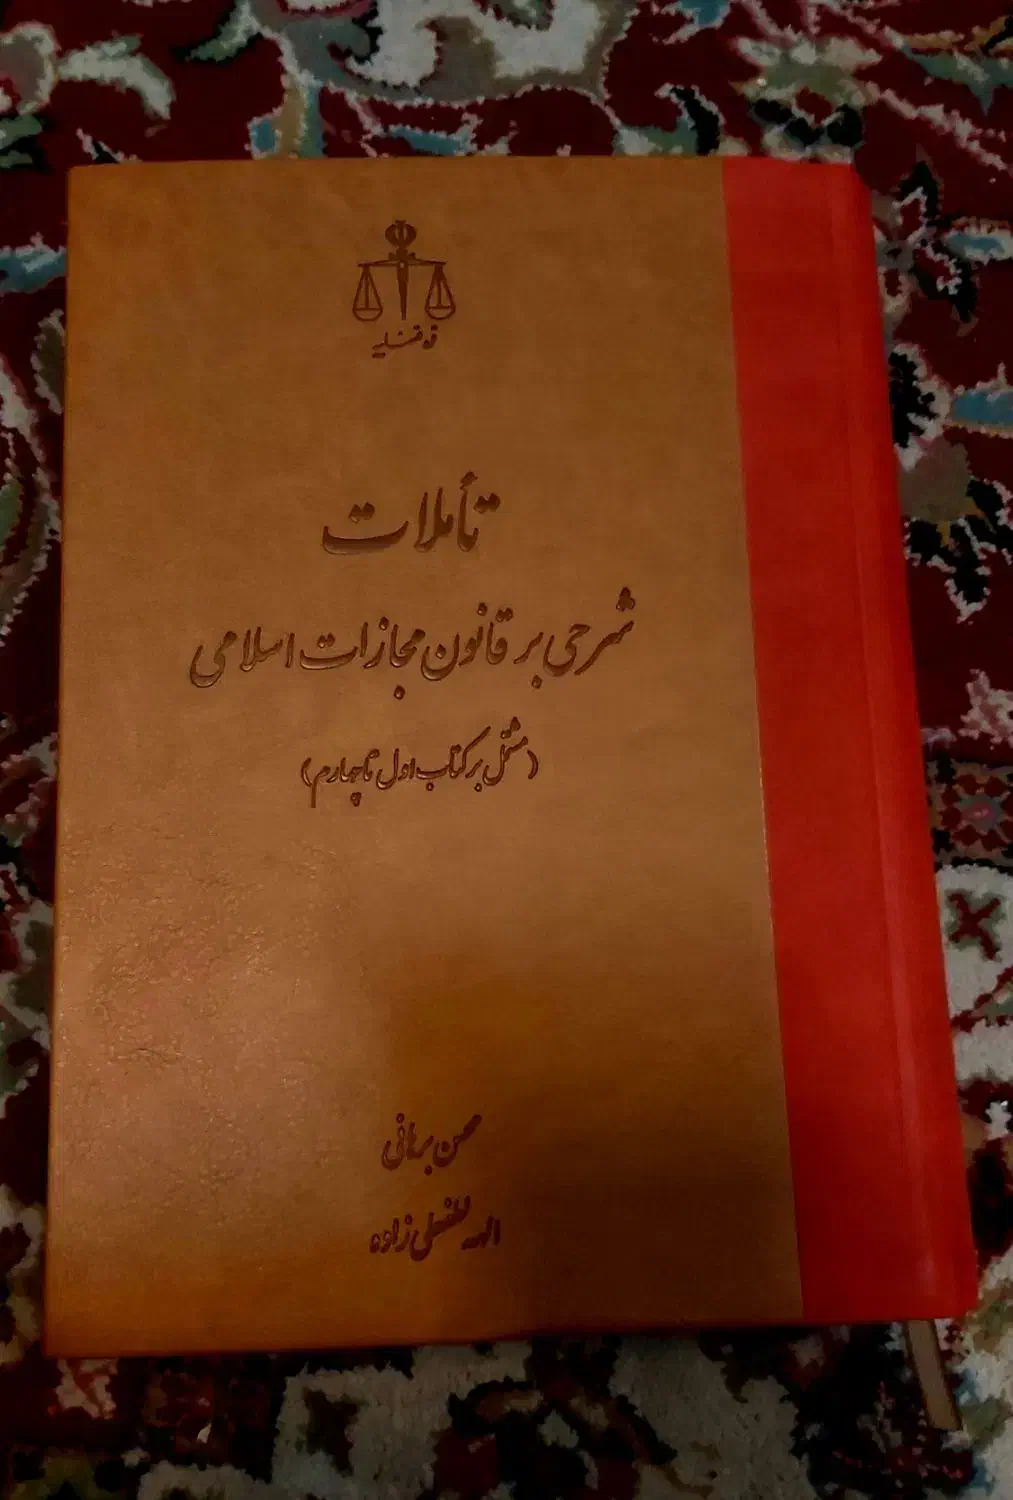 قوه قضائیه
تأملات
شرحی بر قانون مجازات اسلامی
(مشتمل بر کتاب اول تا چهارم)
محسن برهانی
الهه لطفعلی زاده